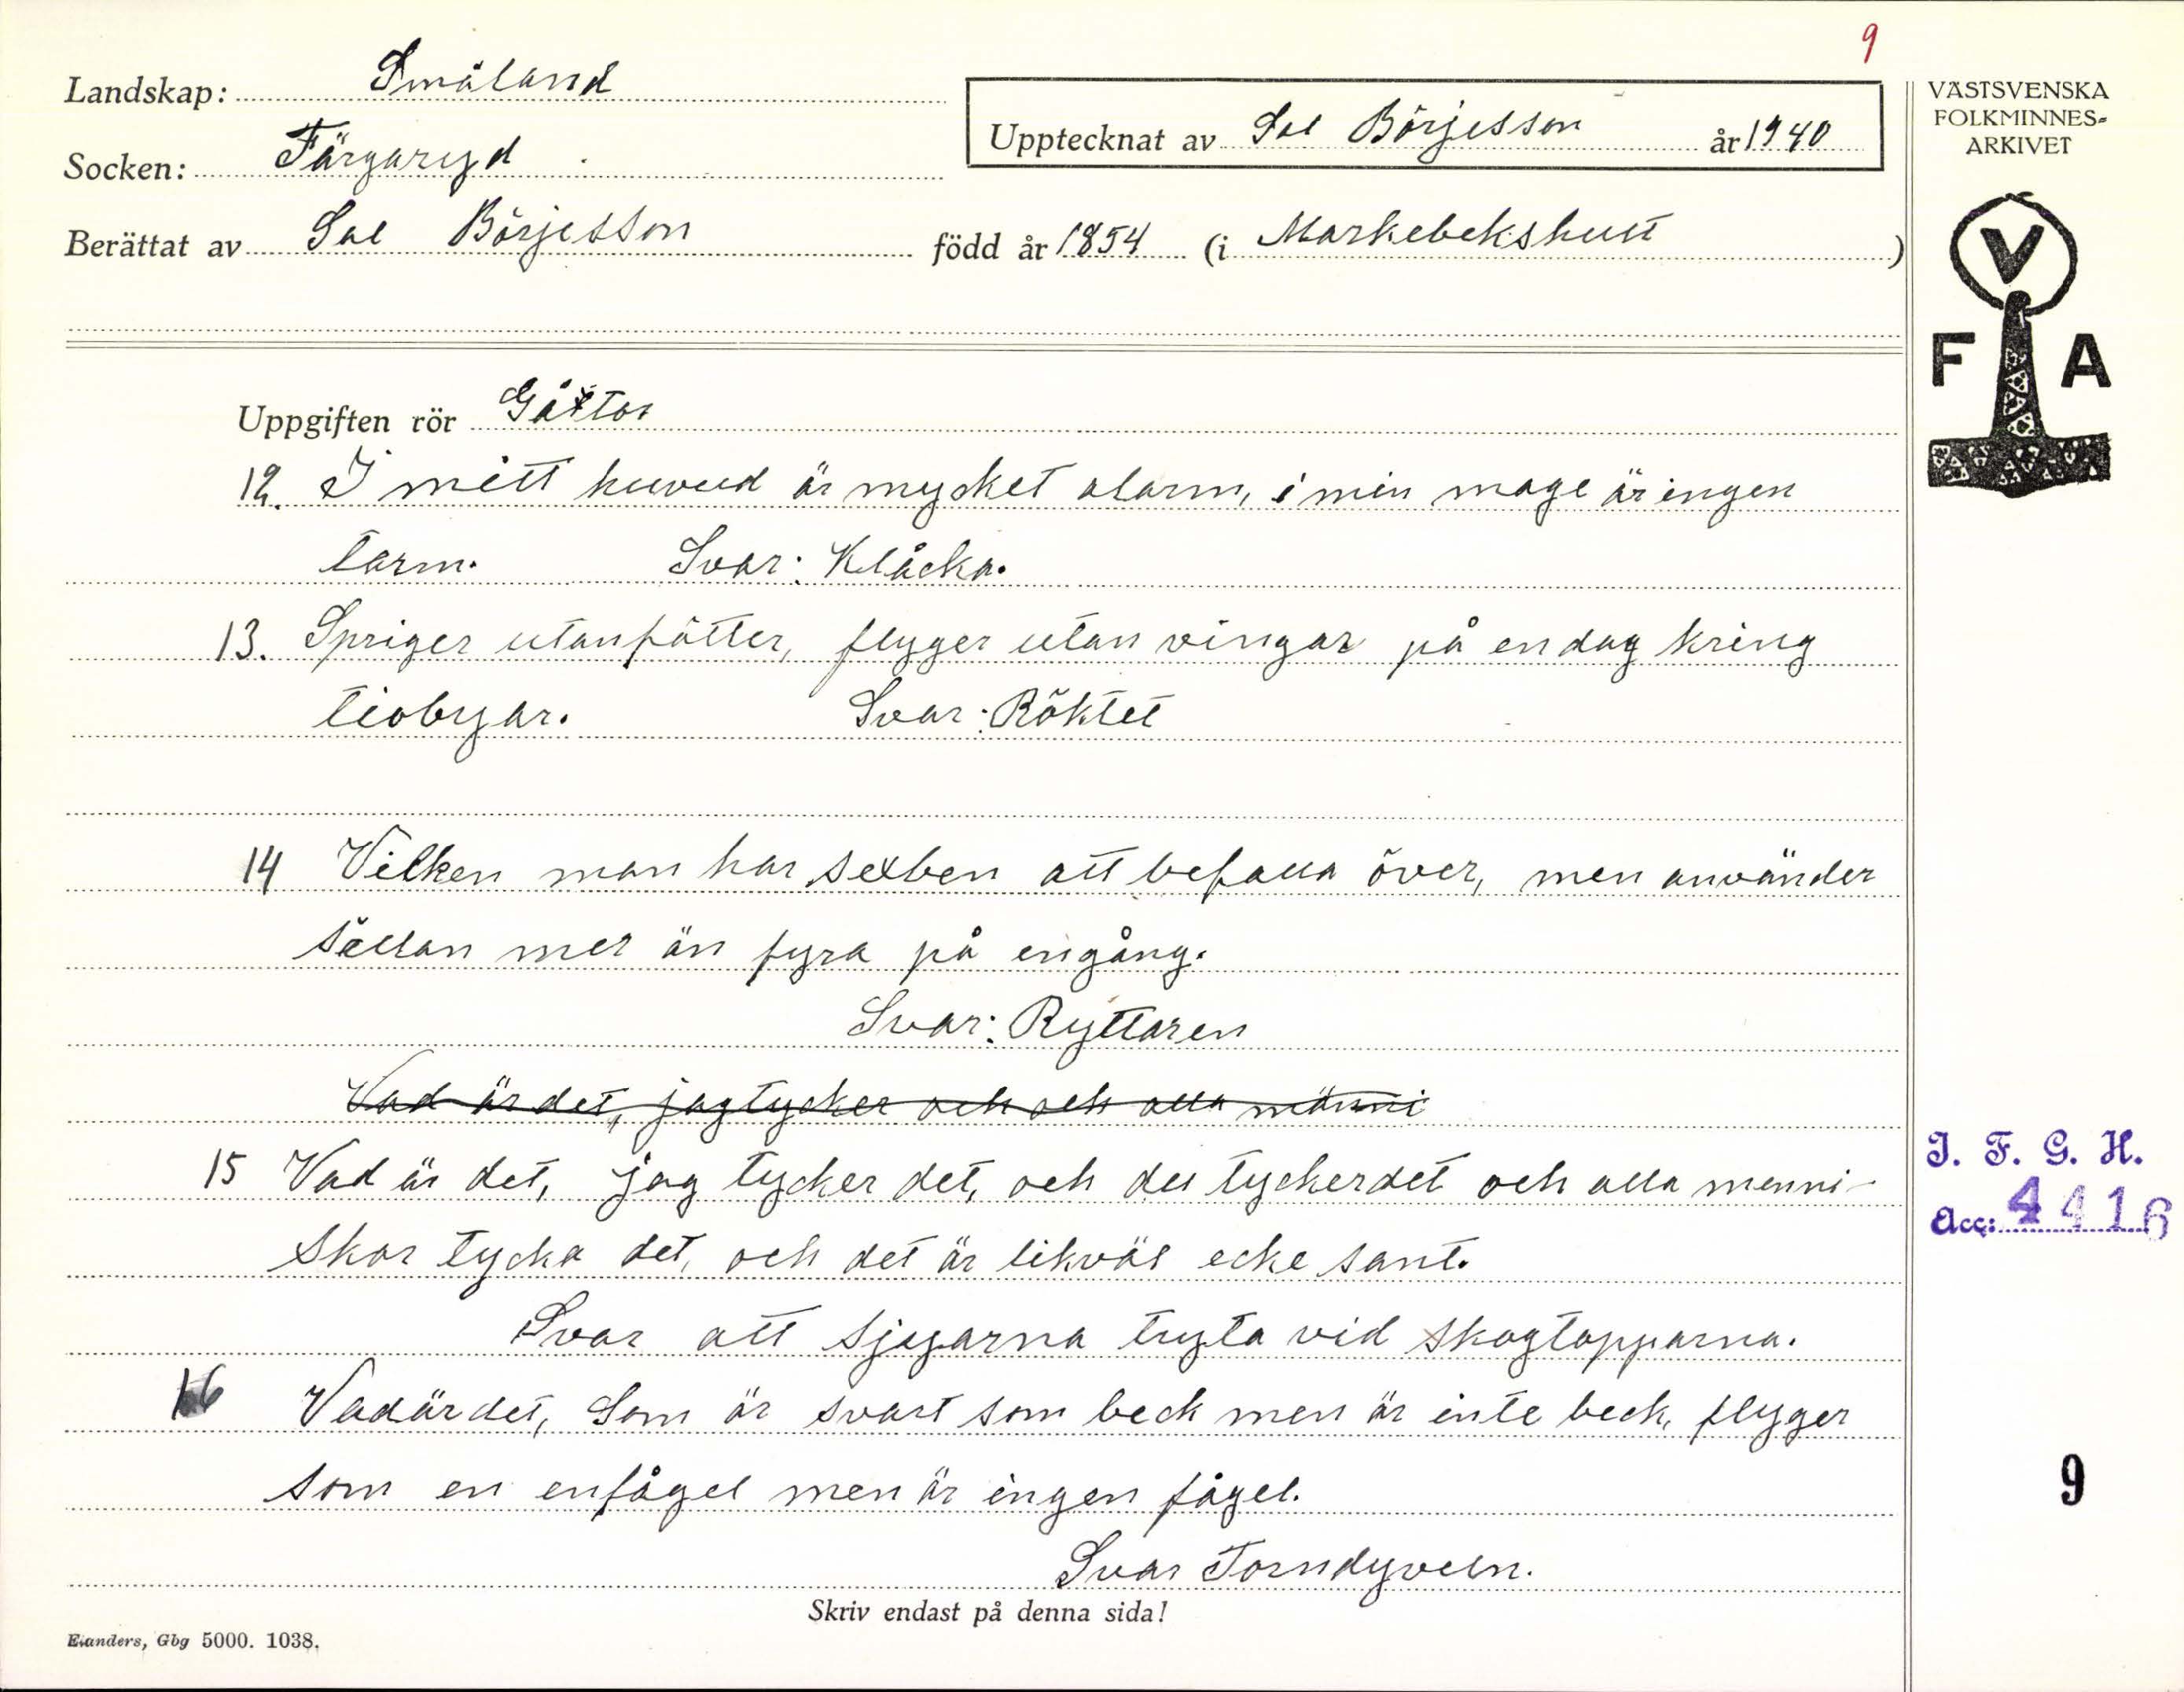 9
Landskap: Småland
Socken: Färgaryd
Upptecknat av Sal Börjesson år 1940
Berättat av Sal Börjesson född år 1854 (i Markebekshult)
VÄSTSVENSKA
FOLKMINNES-
ARKIVET
V
F A
Uppgiften rör Gåttor
12. I mitt huvud är mycket alarm, i min mage är ingen
tarm. Svar: Klåcka.
13. Spriger utanfötter, flyger utan vingar på endag kring
tiobyar. Svar: Röktet
14 Vilken man har sexben att befalla över, men använder
sällan mer än fyra på engång.
Svar: Ryttaren
Vad är det, jagtycker och och alla männi
15 Vad är det, jag tycker det, och du tyckerdet och alla menni-
skor tycka det, och det är likväl ecke sant.
Svar att sjyarna tryta vid skogtopparna.
16 Vadärdet, Som är svart som beck men är inte beck, flyger
som en enfågel men är ingen fågel.
Svar Torndyveln.
J. F. G. H.
Acc: 4416
9
Skriv endast på denna sida!
Elanders, Gbg 5000. 1038.